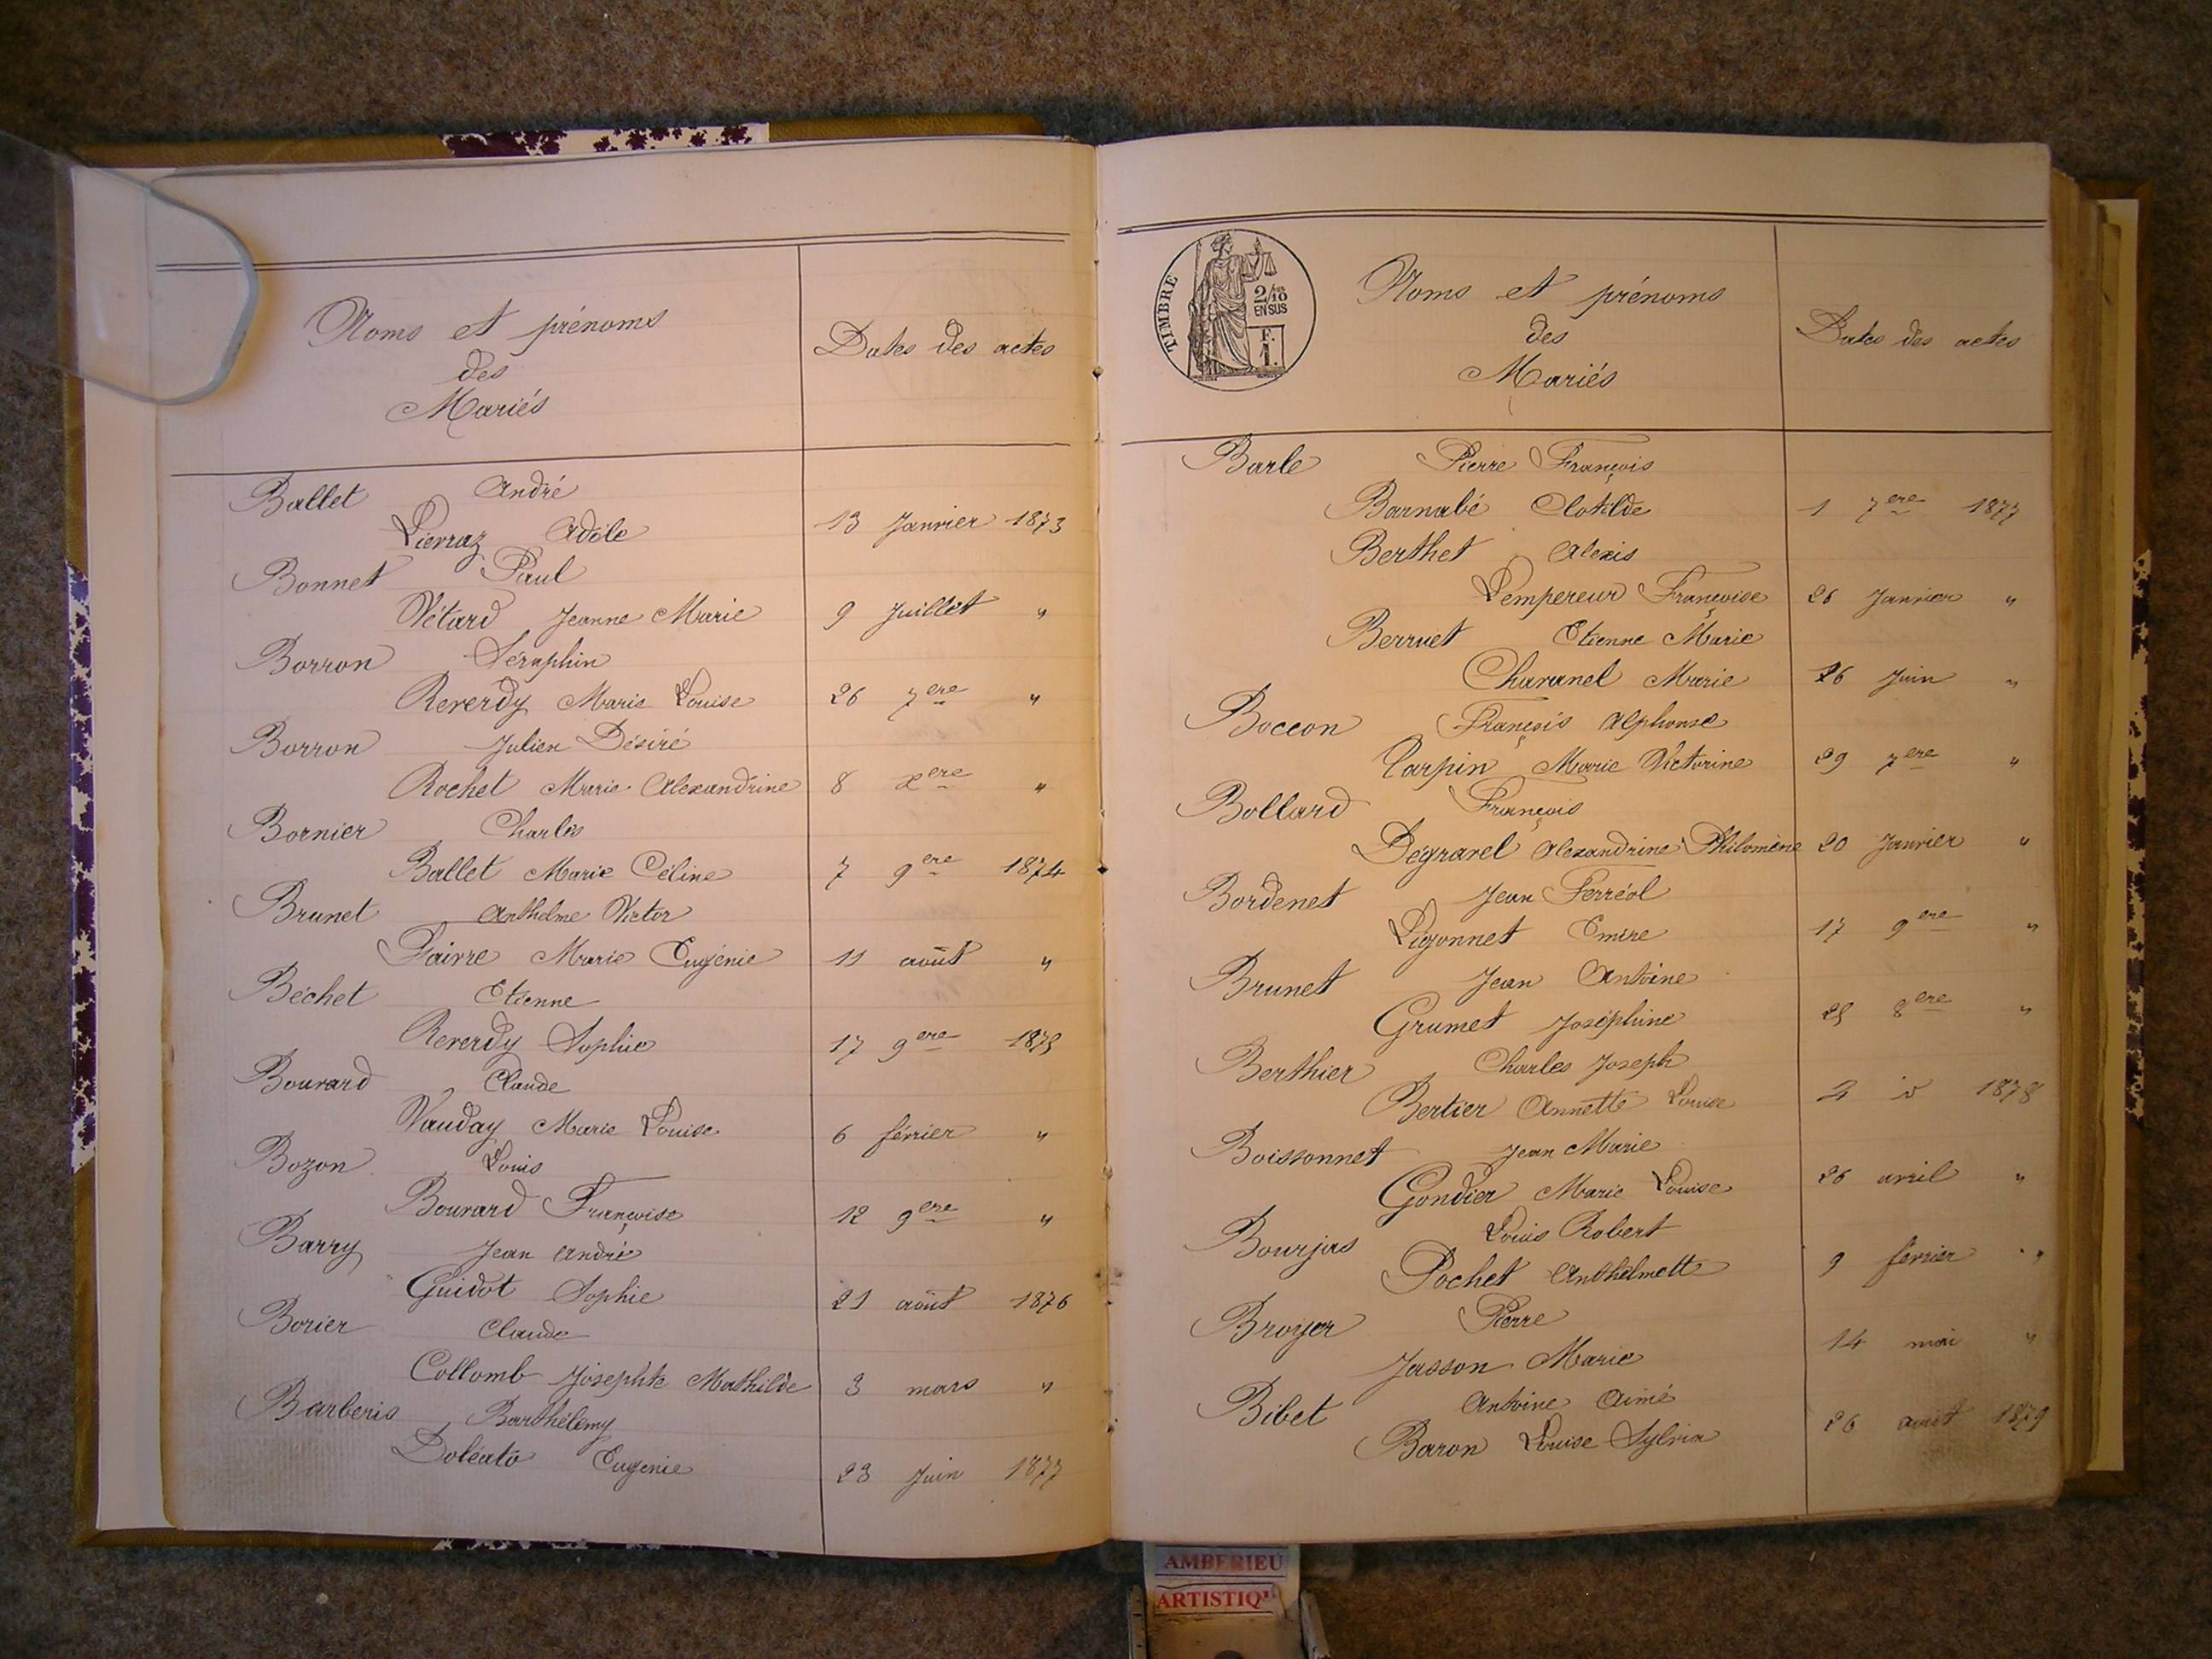 Noms et prénoms
des
Mariés
Dates des actes
Ballet André
Pierraz Adèle 13 Janvier 1873
Bonnet Paul
Vétard Jeanne Marie 9 Juillet "
Borron Séraphin
Reverdy Marie Louise 26 7ere "
Borron Julien Désiré
Rochet Marie Alexandrine 8 xere "
Bornier Charles
Ballet Marie Céline 7 9ere 1874
Brunet Anthelme Victor
Faivre Marie Eugénie 11 août "
Béchet Etienne
Reverdy Sophie 17 9ere 1875
Bouvard Claude
Vauday Marie Louise 6 février "
Bozon Louis
Bouvard Françoise 12 9ere "
Barry Jean André
Guidot Sophie 21 août 1876
Borier Claude
Collomb Josephte Mathilde 3 mars "
Barberis Barthélemy
Doléato Eugenie 23 Juin 1877
TIMBRE
2/10
EN SUS
F.
1.
Noms et prénoms
des
Mariés
Dates des actes
Barle Pierre François
Barnabé Clotilde 1 7ere 1877
Berthet Alexis
Lempereur Françoise 26 Janvier "
Berruet Etienne Marie
Charanel Marie 26 Juin "
Boccon François Alphonse
Carpin Marie Victorine 29 7ere "
Bollard François
Dégravel Alexandrine Philomène 20 Janvier "
Bordenet Jean Ferréol
Ligonnet Emire 17 9ere "
Brunet Jean Antoine
Grumet Joséphine 25 8ere "
Berthier Charles Joseph
Bertier Annette Louise 2 1878
Boissonnet Jean Marie
Gondier Marie Louise 26 avril "
Bourjas Louis Robert
Pochet Anthelmette 9 février "
Broyer Pierre
Jasson Marie 14 mai "
Bibet Antoine Aimé
Baron Louise Sylvia 26 août 1879
AMBERIEU
ARTISTIQU